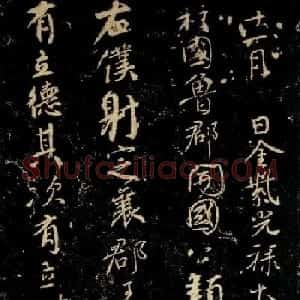 十一月 日金紫光祿大
柱國魯郡開國公顏
右僕射定襄郡王
有立德其次有立
Shufaziliao.com